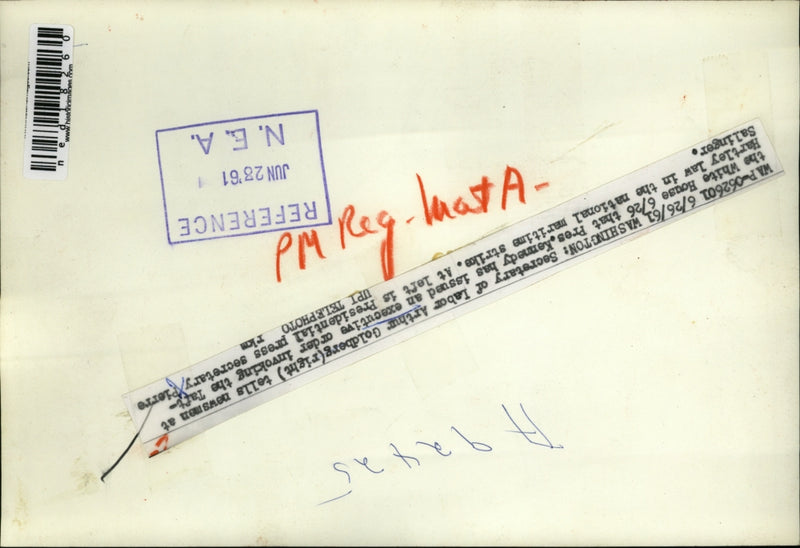 ned18260
www.historicimages.com
REFERENCE
JUN 28 '61
N.E.A.
PM Reg. Mat A-
6/26/61 WASHINGTON: Secretary of Labor Arthur Goldberg(right) tells newsmen at
the White House 6/26 that Pres.Kennedy has issued an executive order invoking the Taft-
Hartley law in the national maritime strike. At left is Presidential press secretary Pierre
Salinger. UPI TELEPHOTO